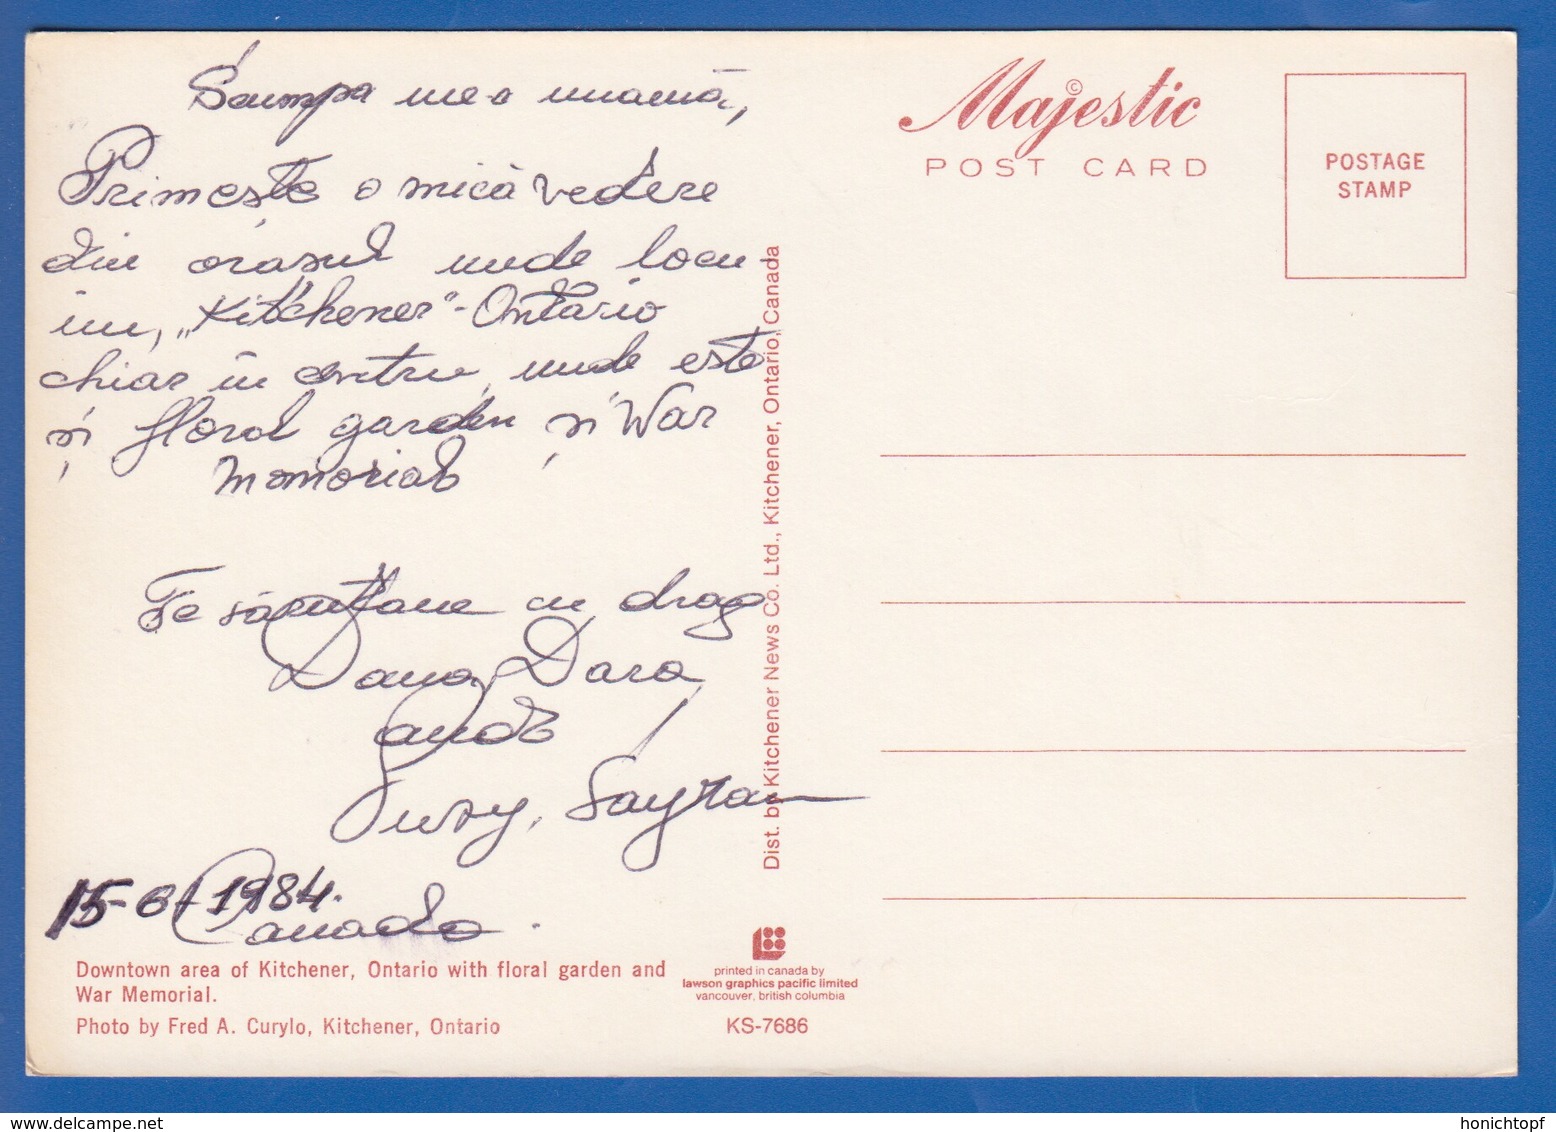 Scumpa mea mamă,
Primește o mică vedere
din orașul unde locu-
im, „Kitchener"-Ontario
chiar în centru, unde este
și floral garden și War
Memorial
Te sărutăm cu drag
Dana, Dara
Suzy,
15-6-1984.
Canada.
Downtown area of Kitchener, Ontario with floral garden and
War Memorial.
Photo by Fred A. Curylo, Kitchener, Ontario
Dist. by Kitchener News Co. Ltd., Kitchener, Ontario, Canada
printed in canada by
lawson graphics pacific limited
vancouver, british columbia
KS-7686
Majestic ©
POST CARD
POSTAGE
STAMP
www.delcampe.net
honichtopf